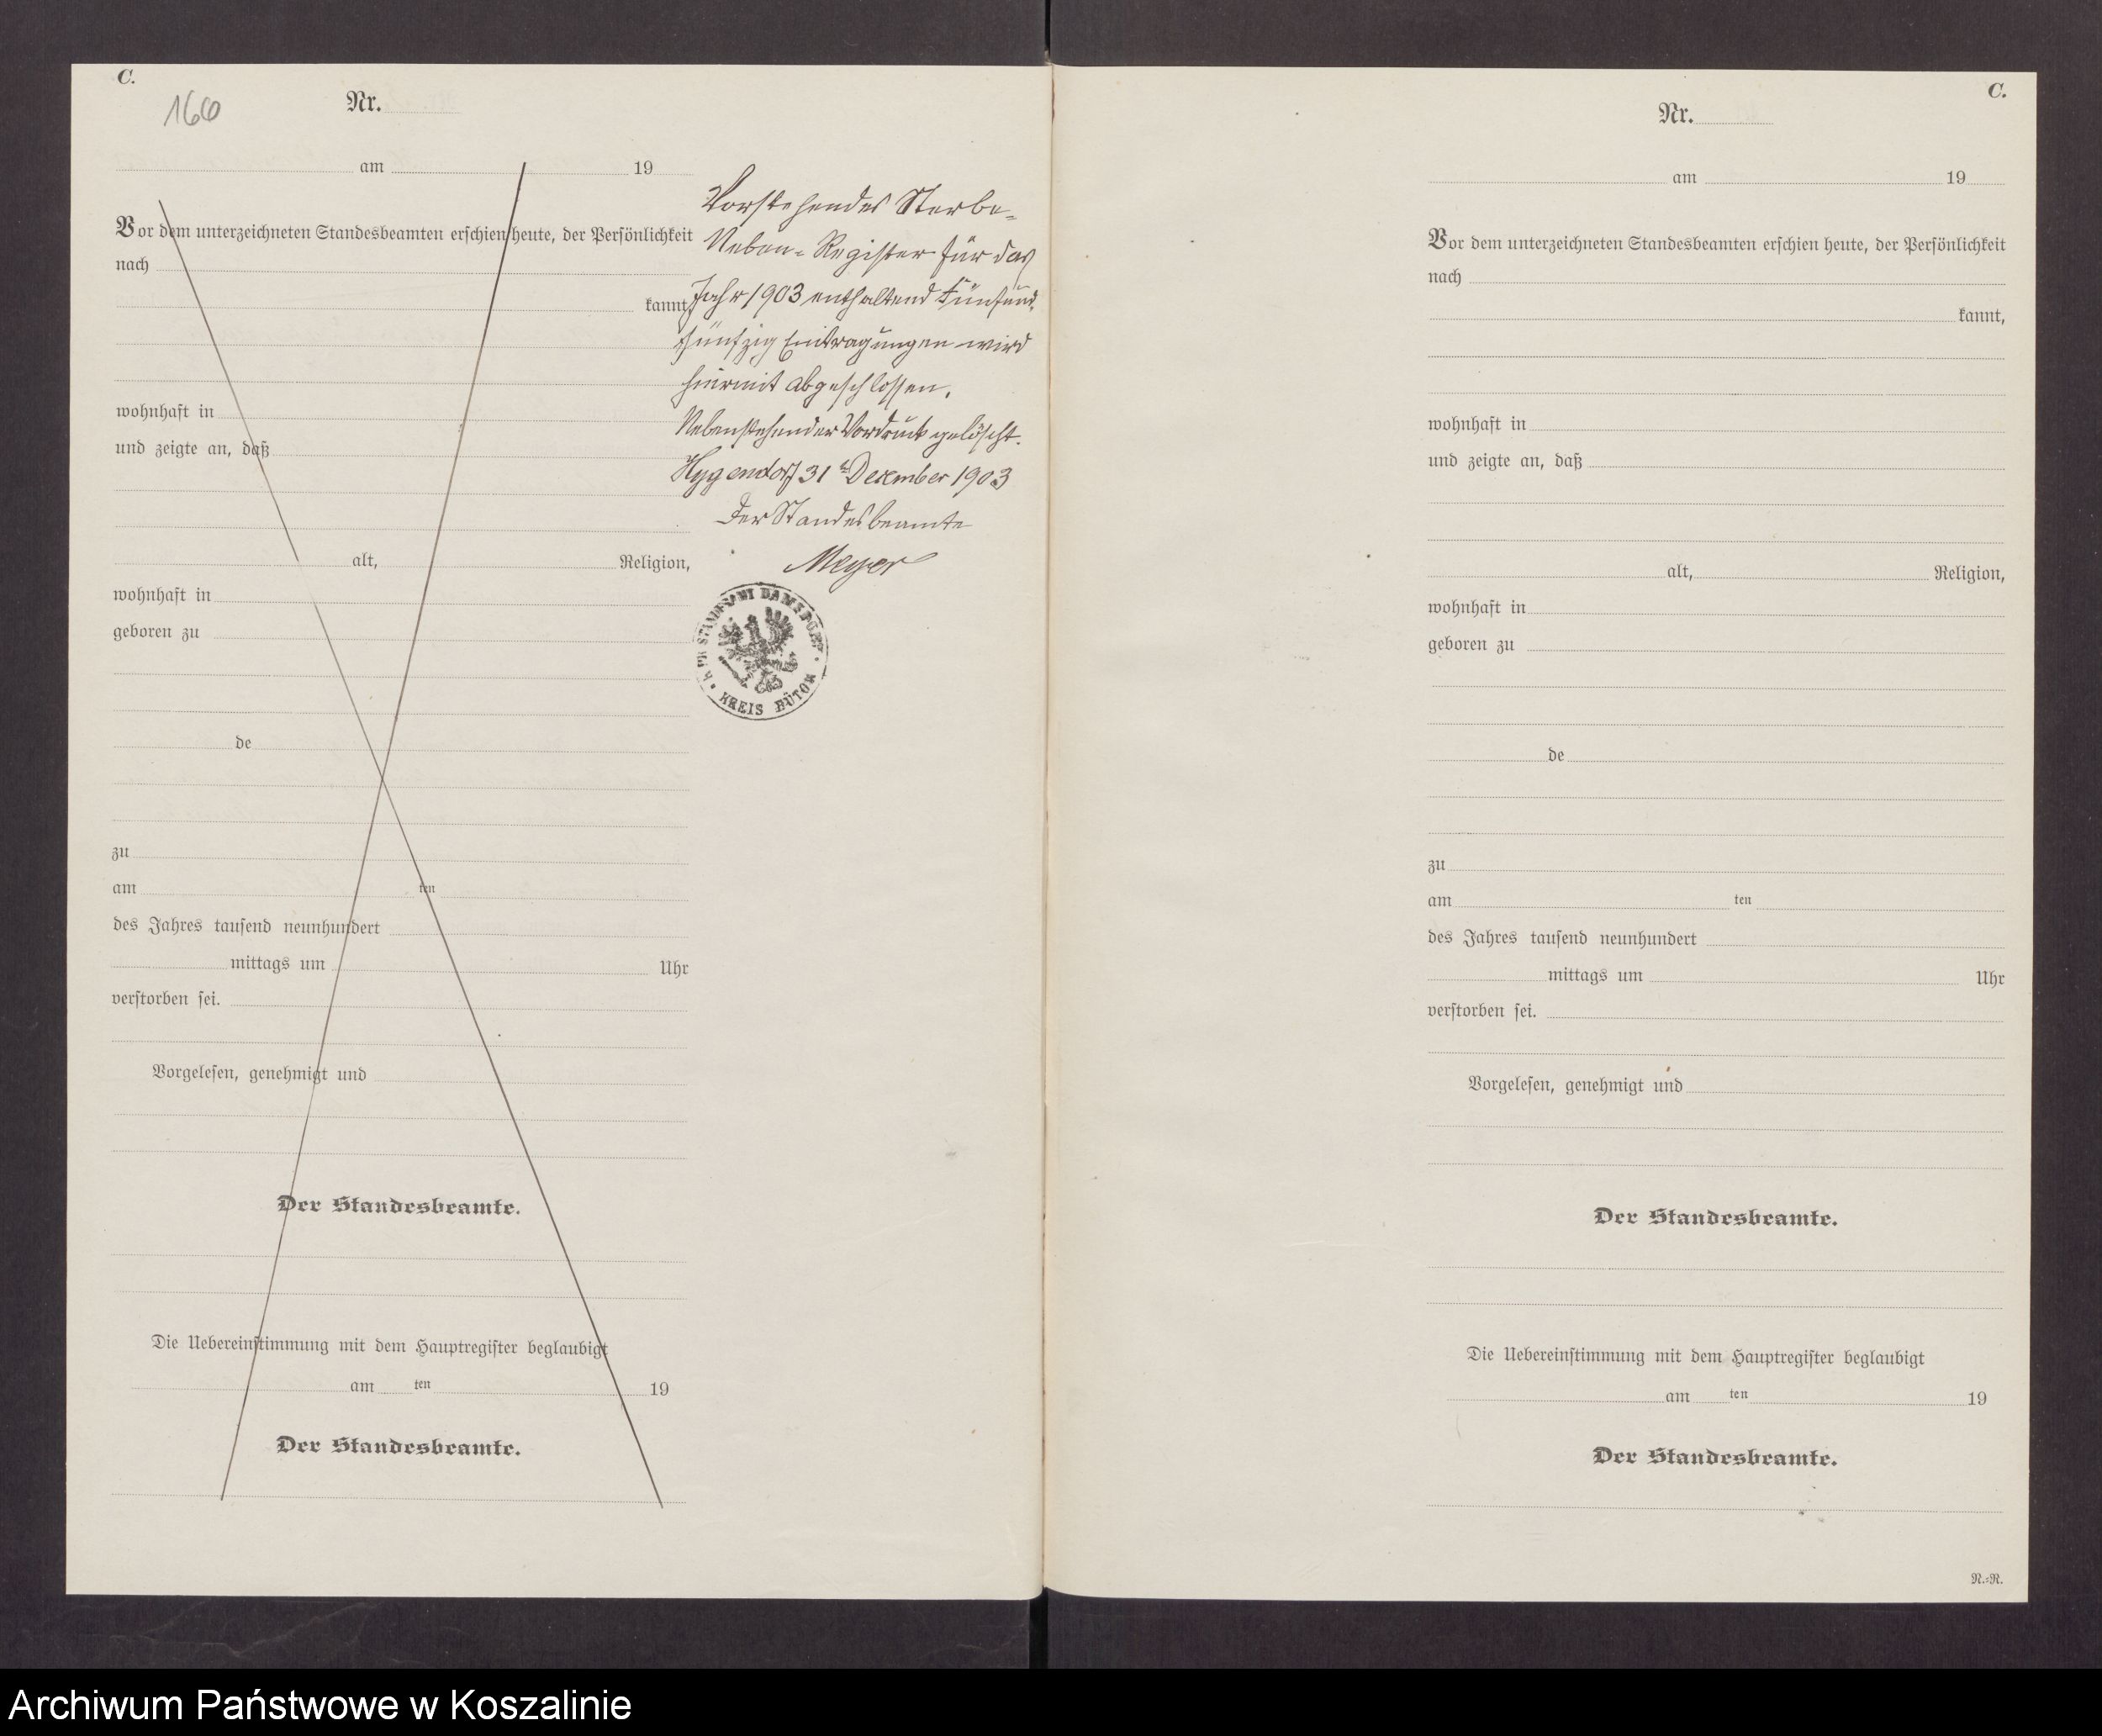 C.
160
Nr.
am 19
Vor dem unterzeichneten Standesbeamten erschien heute, der Persönlichkeit
nach
kannt,
wohnhaft in
und zeigte an, daß
alt, Religion,
wohnhaft in
geboren zu
de
zu
am ten
des Jahres tausend neunhundert
mittags um Uhr
verstorben sei.
Vorgelesen, genehmigt und
Der Standesbeamte.
Die Uebereinstimmung mit dem Hauptregister beglaubigt
am ten 19
Der Standesbeamte.
Vorstehendes Sterbe-
Neben-Register für das
Jahr 1903 enthaltend Fünfund-
fünfzig Eintragungen wird
hiermit abgeschlossen.
Nebenstehender Vordruck gelöscht.
Hygendorf 31 Dezember 1903
Der Standesbeamte
Meyer
K. PR. STANDESAMT DAMSDORF
KREIS BÜTOW
C.
Nr.
am 19
Vor dem unterzeichneten Standesbeamten erschien heute, der Persönlichkeit
nach
kannt,
wohnhaft in
und zeigte an, daß
alt, Religion,
wohnhaft in
geboren zu
de
zu
am ten
des Jahres tausend neunhundert
mittags um Uhr
verstorben sei.
Vorgelesen, genehmigt und
Der Standesbeamte.
Die Uebereinstimmung mit dem Hauptregister beglaubigt
am ten 19
Der Standesbeamte.
N.-R.
Archiwum Państwowe w Koszalinie